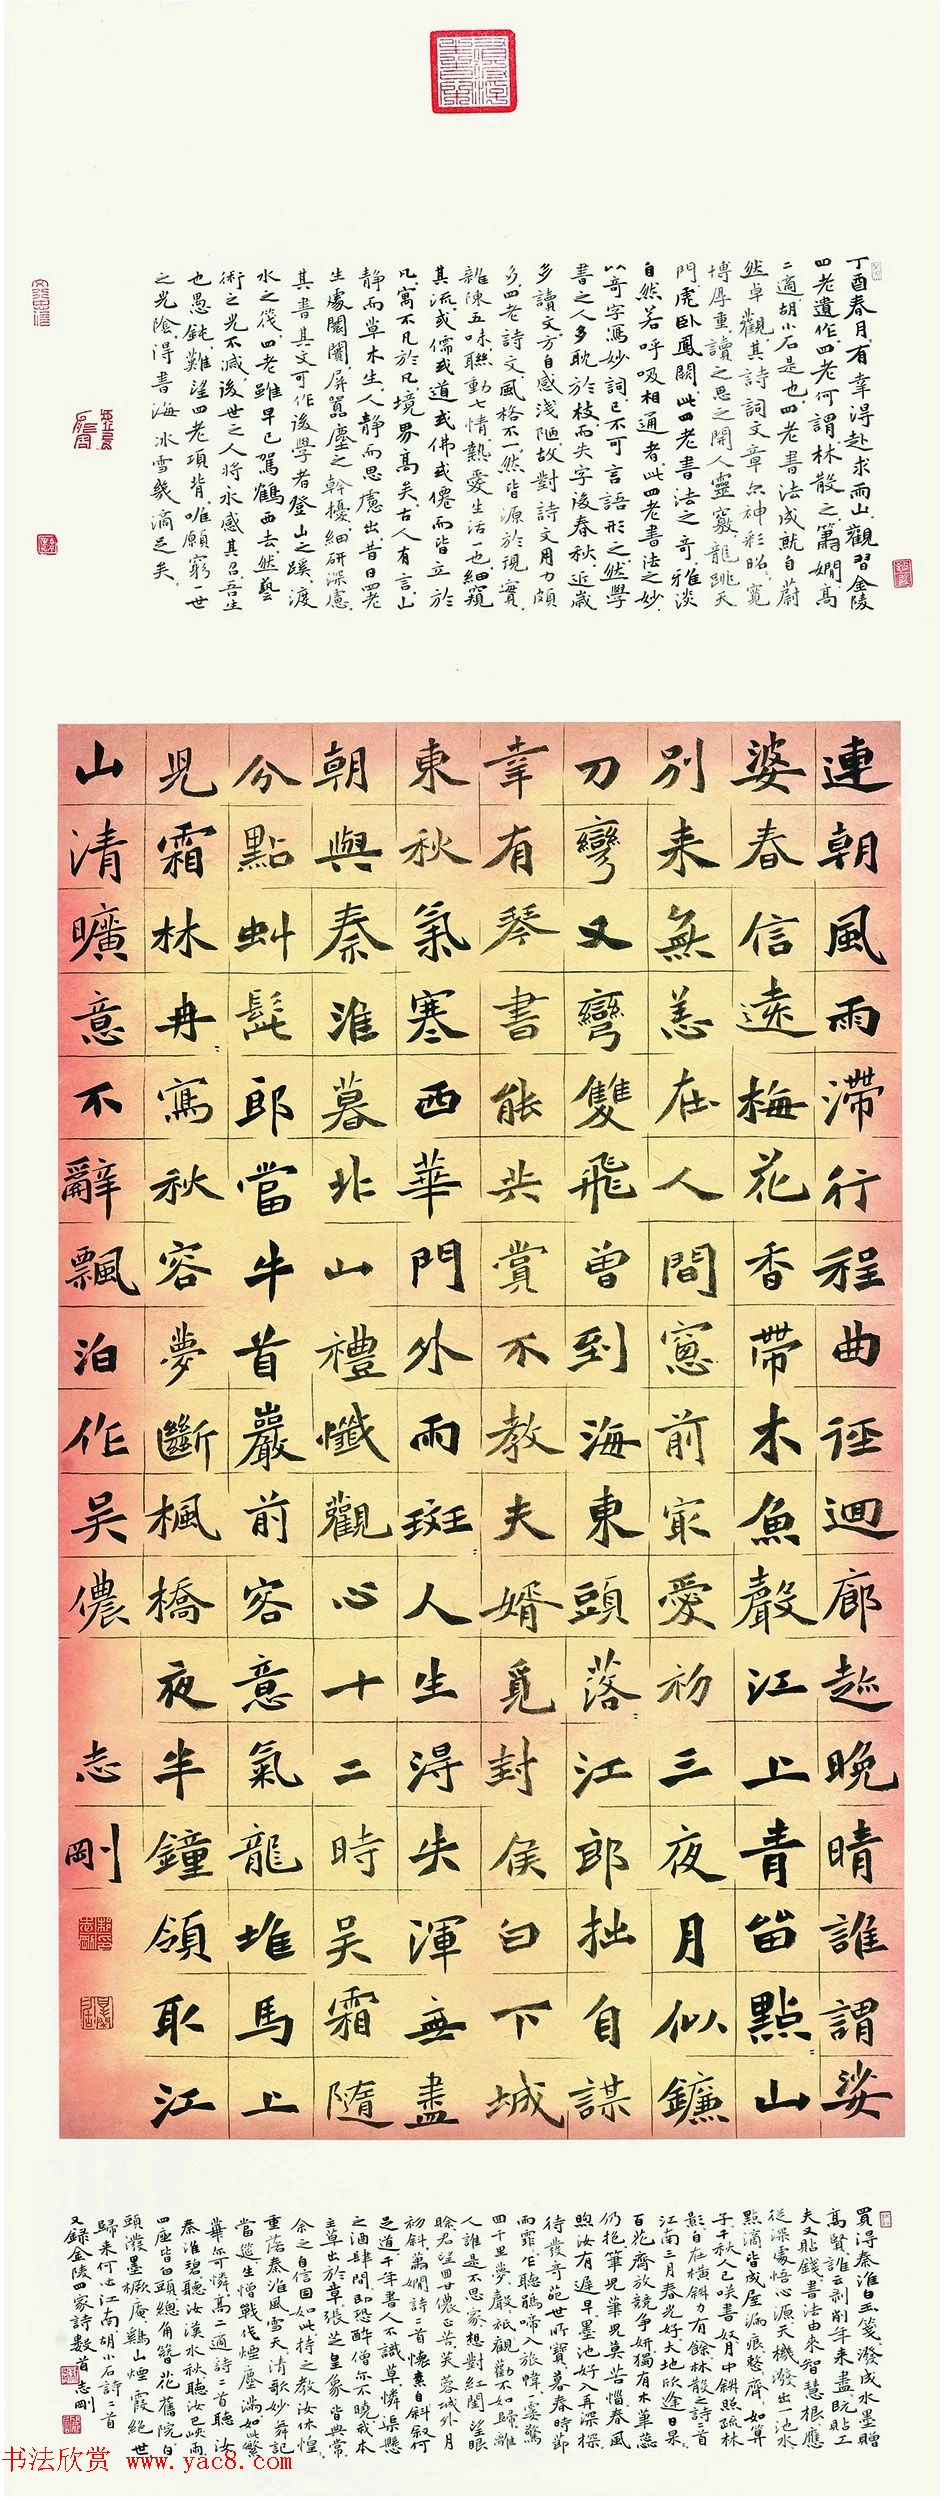 丁酉春月,有幸得赴求雨山觀習金陵
四老遺作,四老何謂林散之蕭嫻,高
二適,胡小石是也,四老書法成就自蔚
然卓觀,其詩詞文章亦神彩昭,寬
博厚重,讀之思之開人靈竅,龍跳天
門,虎臥鳳闕,此四老書法之奇,雅淡
自然,若呼吸相通者,此四老書法之妙,
以奇字馮妙詞,已不可言語形之,然學
書之人多耽於枝,而失字後春秋,近歲
多讀文,方自感淺陋,故對詩文用力頗
多,四老詩文,風格不一,然皆源於現實,
雜陳五味,聯動七情,熱愛生活一也,細窺
其流,或儒或道或佛或僊而皆立於
凡,寓不凡於凡,境界高矣,古人有言,山
靜而草木生,人靜而思慮出,昔日四老
生處闤闠,屏囂塵之幹擾,細研深慮,
其書其文可作後學者登山之蹊,渡
水之筏,四老雖早已駕鶴西去,然藝
術之光不滅,後世之人將永感其召,吾生
也愚鈍,難望四老項背,唯願窮一世
之光陰,得書海冰雪幾滴足矣.
連朝風雨滯行程曲徑迴廊趁晚晴誰謂娑
婆春信遠梅花香帶木魚聲江上青苗點點山
別來無恙在人間窗前最愛初三夜月似鐮
刀彎又彎雙飛曾到海東頭落落江郎拙自謀
幸有琴書能共賞不教夫婿覓封侯白下城
東秋氣寒西華門外雨斑斑人生得失渾無盡
朝與秦淮暮北山禮懺觀心十二時吳霜隨
分點虯髭郎當牛首巖前客意氣龍堆馬上
兒霜林冉冉寫秋容夢斷楓橋夜半鐘領取江
山清曠意不辭飄泊作吳儂 志剛
買得秦淮白玉箋,潑成水墨贈
高賢誰云剝削年來盡既貼工
夫又貼錢書法由來智慧根應
從深處悟心源天機潑出一池水
點滴皆成屋漏痕整齊如算
子千秋人已咲書奴月中斜照疏林
影自在橫斜力有餘林散之詩二首
江南三月春光好大地欣逢日杲
百花齊放競爭妍獨有木筆蕊
仍抱筆兒筆兒莫苦惱春風
煦汝有遲早墨池好入再深探
待發奇葩世所寶暮春時節
雨霏乍聽鵑啼入旅幃一霎驚
四千里夢聲祇觀勸不如歸離
人誰是不思家想對紅閨望眼
賒君望四廿儂亡苦芙蓉城外月
初斜蕭嫻詩二首懷素自叙何
足道千年書人不識草憐渠懸
之酒肆間即恐醉僧亦不曉我本
主草出於章張芝皇象皆典常
余之自信固如此持之教汝休惶
重落秦淮風雪天清歌妙舞記
當筵生憎戰伐煙塵滿如此繁
華亦可憐高二適詩二首聽汝
秦淮碧聽汝溪水秋聽汝巴峽雨
四座皆白頭總角簪花舊院白
頭潑墨橛庵雞山煙霞絕世
歸來何必江南胡小石詩二首
又錄金陵四家詩數首志剛
书法欣赏 www.yac8.com